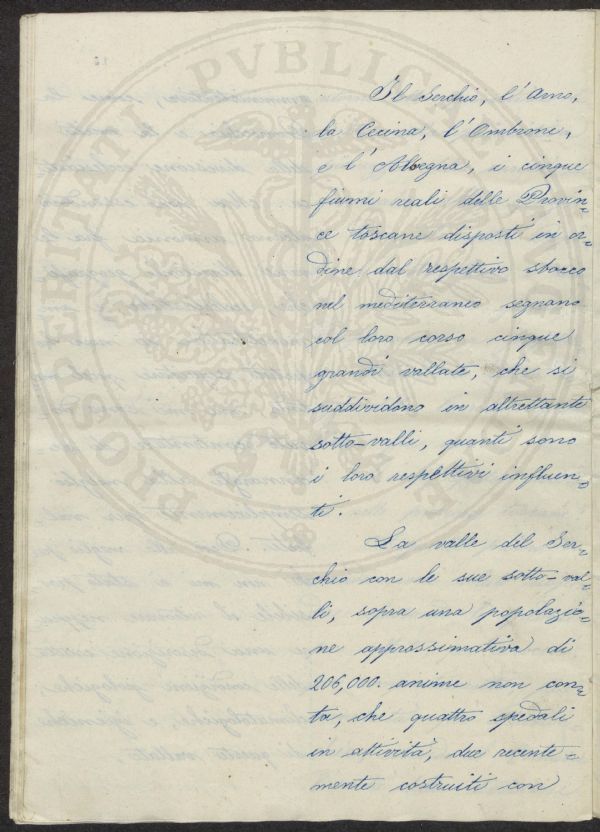 Il Serchio, l'Arno,
la Cecina, l'Ombrone,
e l'Albegna, i cinque
fiumi reali delle Provin=
ce toscane disposti in or=
dine dal respettivo sbocco
nel mediterraneo segnano
col loro corso cinque
grandi vallate, che si
suddividono in altrettante
sotto-valli, quanti sono
i loro respettivi influen=
ti.
La valle del Ser=
chio con le sue sotto-val=
li, sopra una popolazio=
ne approssimativa di
206,000. anime non con=
ta, che quattro spedali
in attività, due recente=
mente costruiti con